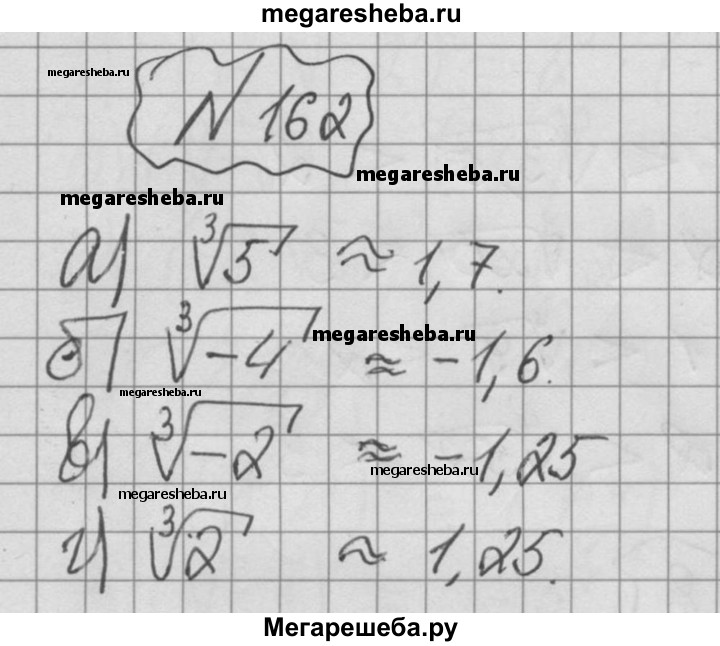 megaresheba.ru
megaresheba.ru
N 162
megaresheba.ru
megaresheba.ru
а) ∛5 ≈ 1,7.
megaresheba.ru
б) ∛-4 ≈ -1,6.
megaresheba.ru
в) ∛-2 ≈ -1,25
megaresheba.ru
megaresheba.ru
г) ∛2 ≈ 1,25.
Мегарешеба.ру